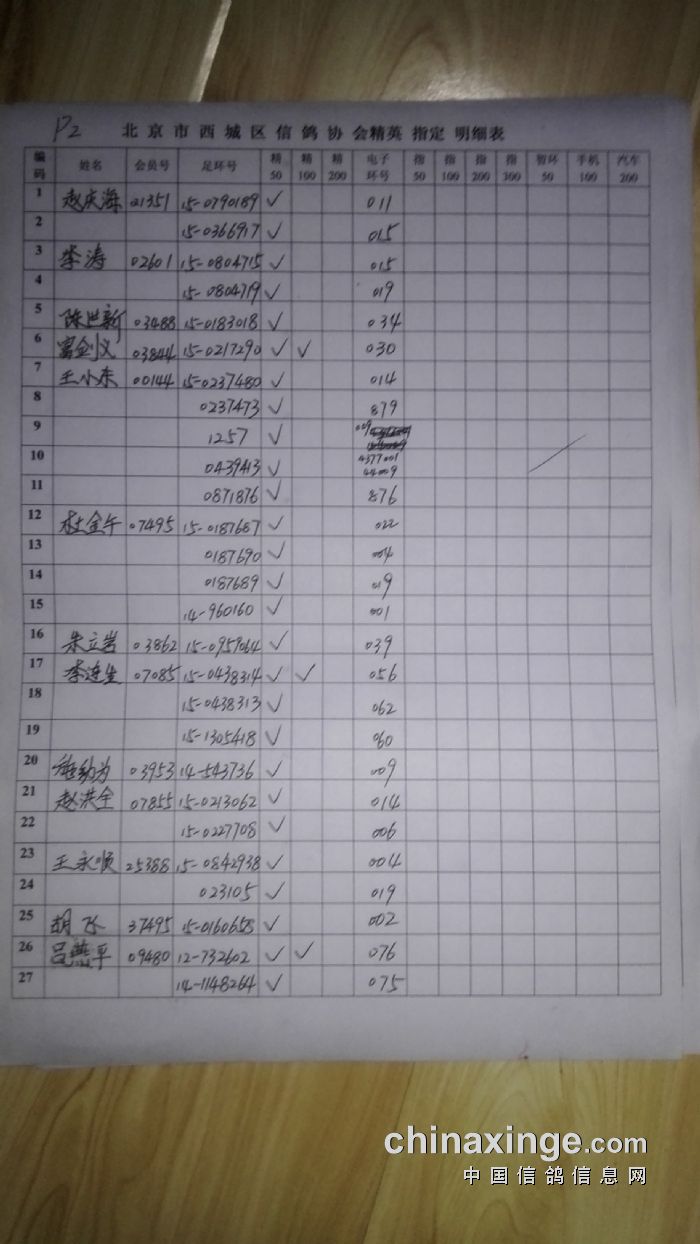 P2 北京市西城区信鸽协会精英 指定 明细表
编码 姓名 会员号 足环号 精50 精100 精200 电子环号 指50 指100 指200 指300 智环50 手机100 汽车200
1 赵庆海 01351 15-0790189 ✓ 011
2 15-0366917 ✓ 015
3 李涛 02601 15-0804715 ✓ 015
4 15-0804719 ✓ 019
5 陈世新 03488 15-0183018 ✓ 034
6 富剑义 03844 15-0217290 ✓ ✓ 030
7 王小东 00144 15-0237480 ✓ 014
8 0237473 ✓ 879
9 1257 ✓ 009
10 0439413 ✓ 4377001
44009
11 0871876 ✓ 876
12 杜金午 07495 15-0187687 ✓ 022
13 0187690 ✓ 004
14 0187689 ✓ 019
15 14-960160 ✓ 001
16 朱立岩 03862 15-0959064 ✓ 039
17 李连生 07085 15-0438314 ✓ ✓ 056
18 15-0438313 ✓ 062
19 15-1305418 ✓ 060
20 幼为 03953 14-543736 ✓ 009
21 赵洪全 07855 15-0213062 ✓ 014
22 15-0227708 ✓ 006
23 王永顺 25388 15-0842938 ✓ 004
24 023105 ✓ 019
25 胡飞 37495 15-0160658 ✓ 002
26 吕燕平 09480 12-732602 ✓ ✓ 076
27 14-1148264 ✓ 075
chinaxinge.com
中国信鸽信息网